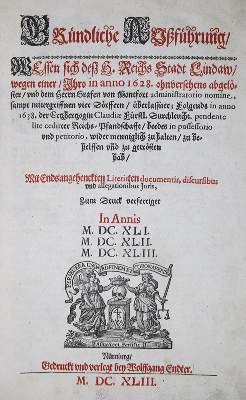 Gründliche Außführung/
Wessen sich deß H. Reichs Stadt Lindaw/
wegen einer / Ihro in anno 1628. ohnversehens abgelö-
ster / und dem Herrn Grafen von Montfort administratorio nomine,
sampt mitergriffnen vier Dörffern / überlassner; Folgends in anno
1638. der Ertzhertzogin Claudiæ Fürstl. Durchleucht. pendente
lite cedirter Reichs-Pfandschafft / beedes in possessorio
und petitorio, wider menniglich zu halten / zu be-
helffen und zu getrösten
hab /
Mit Endsangehenckten Literis documentis, discursibus
und allegationibus Juris,
Zum Druck verfertiget
In Annis
M. DC. XLI.
M. DC. XLII.
M. DC. XLIII.
Nürnberg /
Gedruckt und verlegt bey Wolffgang Endter.
M. DC. XLIII.